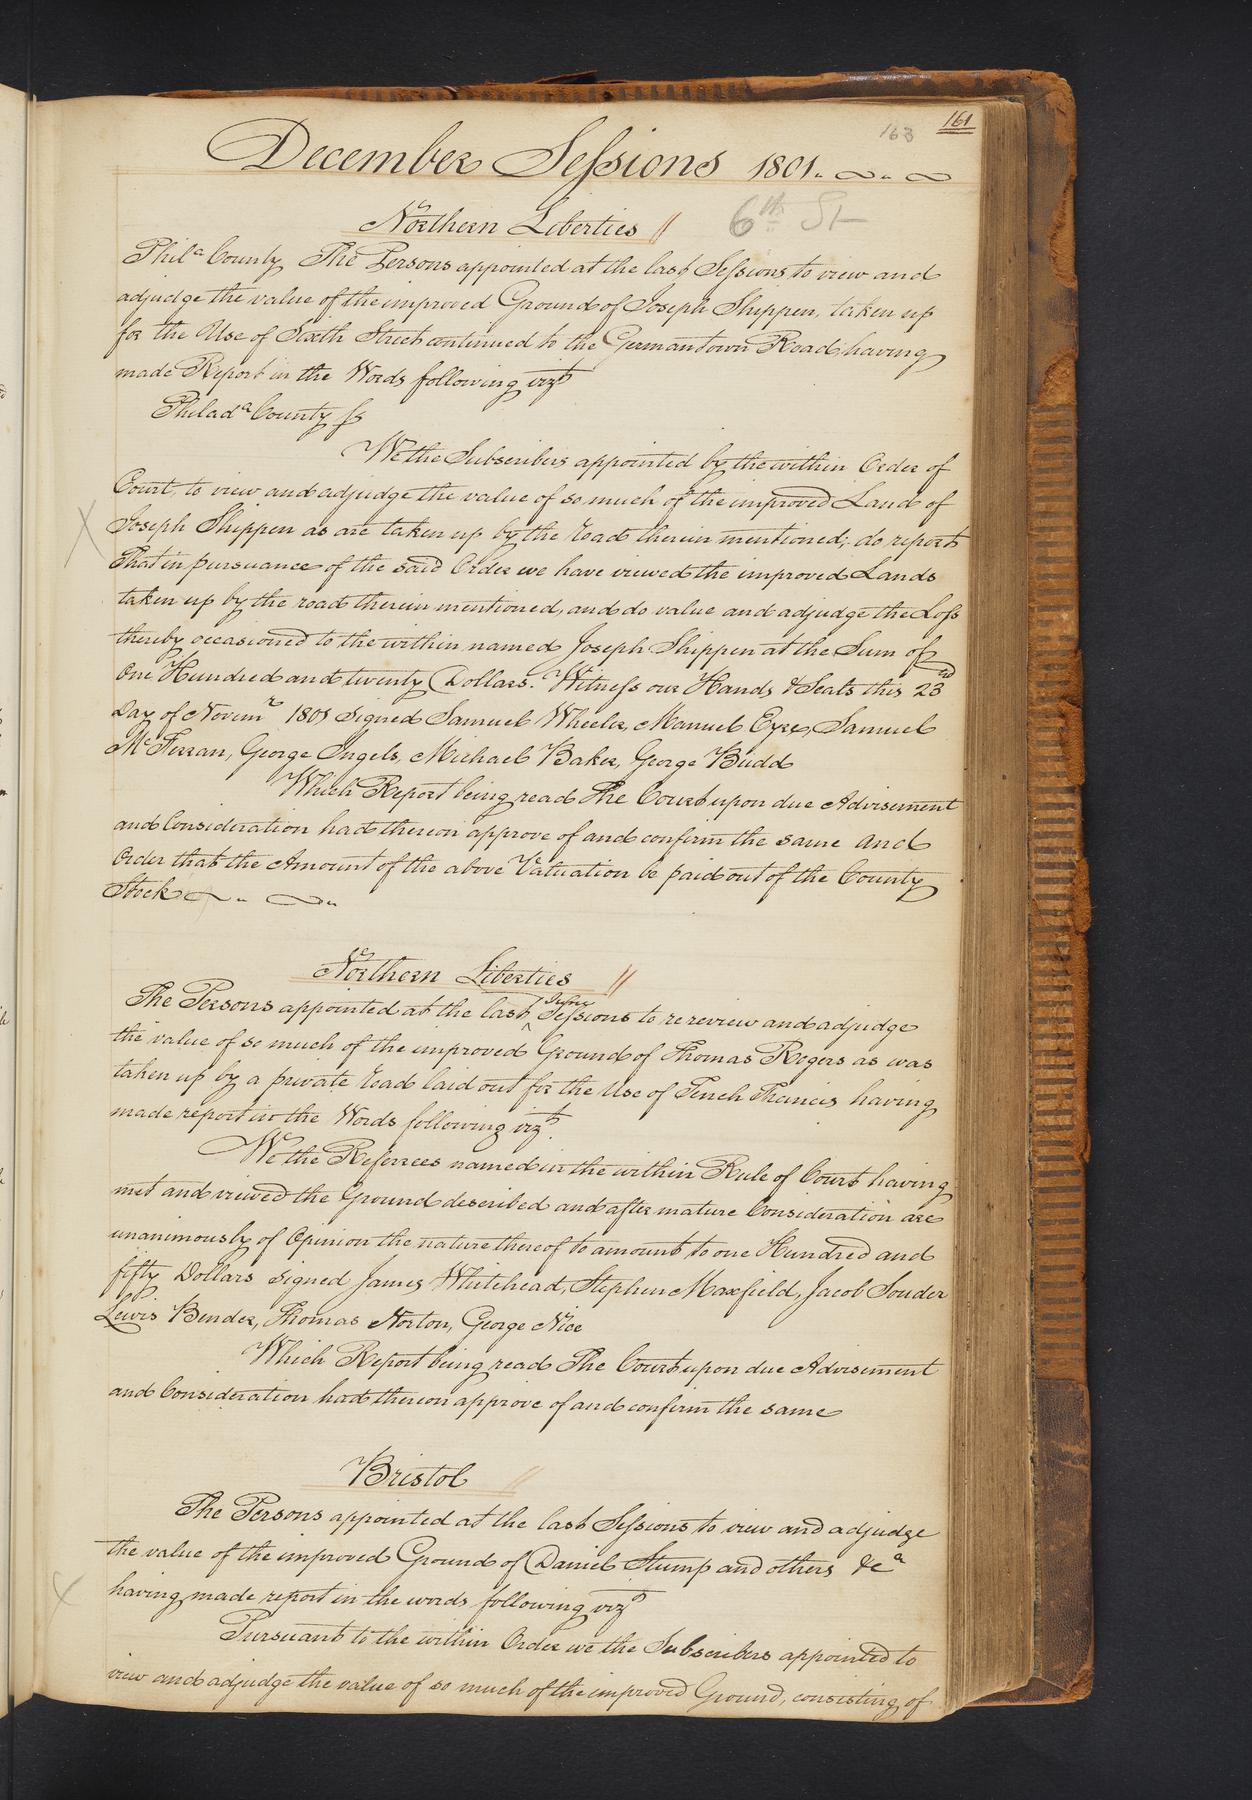 163
161
December Sessions 1801
Northern Liberties //
6th St
Phila County The Persons appointed at the last Sessions to view and
adjudge the value of the improved Ground of Joseph Shippen, taken up
for the Use of Sixth Street continued to the Germantown Road having
made Report in the Words following vizt
Philada County ss
We the Subscribers appointed by the within Order of
Court, to view and adjudge the value of so much of the improved Land of
Joseph Shippen as are taken up by the Road therein mentioned; do report
That in pursuance of the said Order we have viewed the improved Lands
taken up by the road therein mentioned, and do value and adjudge the Loss
thereby occasioned to the within named Joseph Shippen at the Sum of
One Hundred and twenty Dollars. Witness our Hands & Seals this 23rd
Day of Novemr 1801 Signed Samuel Wheeler, Manuel Eyre, Samuel
McFerran, George Ingels, Michael Baker, George Budd
Which Report being read The Court upon due Advisement
and Consideration had thereon approve of and confirm the same and
Order that the Amount of the above Valuation be paid out of the County
Stock
Northern Liberties //
June
The Persons appointed at the last ^ Sessions to rereview and adjudge
the value of so much of the improved Ground of Thomas Rogers as was
taken up by a private Road laid out for the Use of Tench Francis having
made report in the Words following vizt.
We the Referrees named in the within Rule of Court having
met and viewed the Ground described and after mature Consideration are
unanimously of Opinion the nature thereof to amount to one Hundred and
fifty Dollars signed James Whitehead, Stephen Maxfield, Jacob Souder
Lewis Bender, Thomas Norton, George Nice
Which Report being read The Court upon due Advisement
and Consideration had thereon approve of and confirm the same
Bristol //
The Persons appointed at the last Sessions to view and adjudge
the value of the improved Ground of Daniel Stump and others &ca
having made report in the words following vizt
Pursuant to the within Order we the Subscribers appointed to
view and adjudge the value of so much of the improved Ground, consisting of